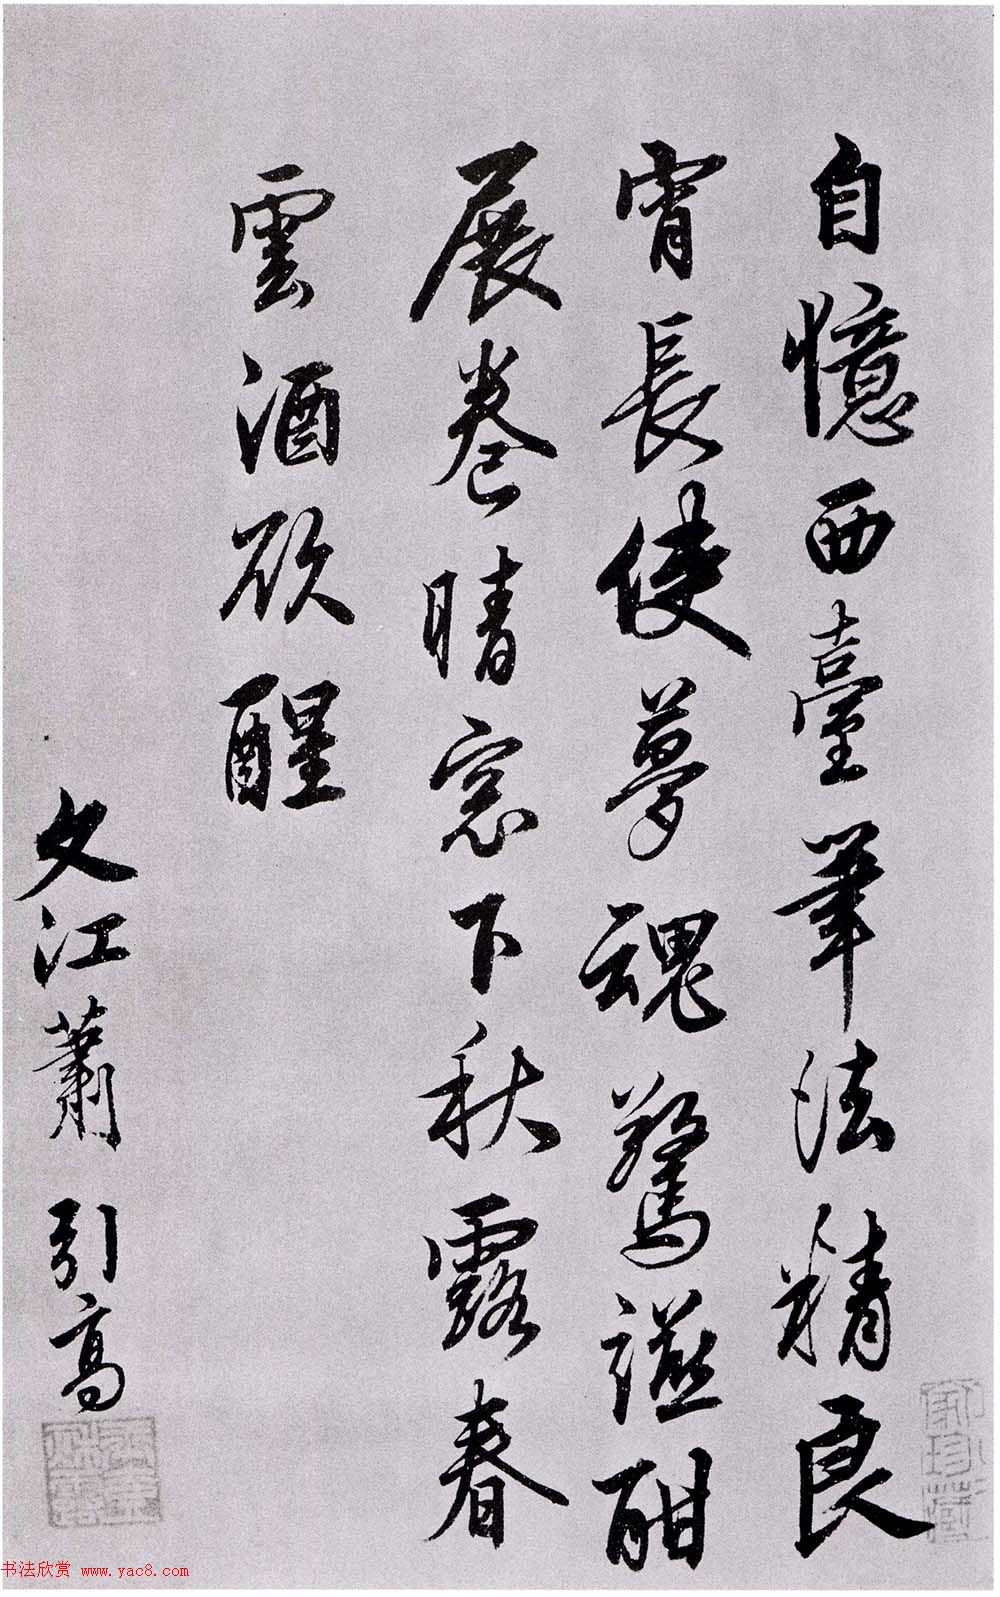 自憶西臺筆法精良
宵長使夢魂驚謳酣
展卷晴窓下秋露春
雲酒欣醒
文江蕭引高
书法欣赏 www.yac8.com